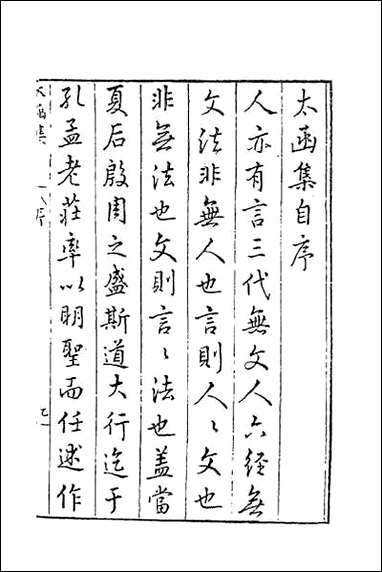 太函集自序
人亦有言三代無文人六經無
文法非無人也言則人〻文也
非無法也文則言〻法也蓋當
夏后殷周之盛斯道大行迄于
孔孟老莊率以明聖而任述作